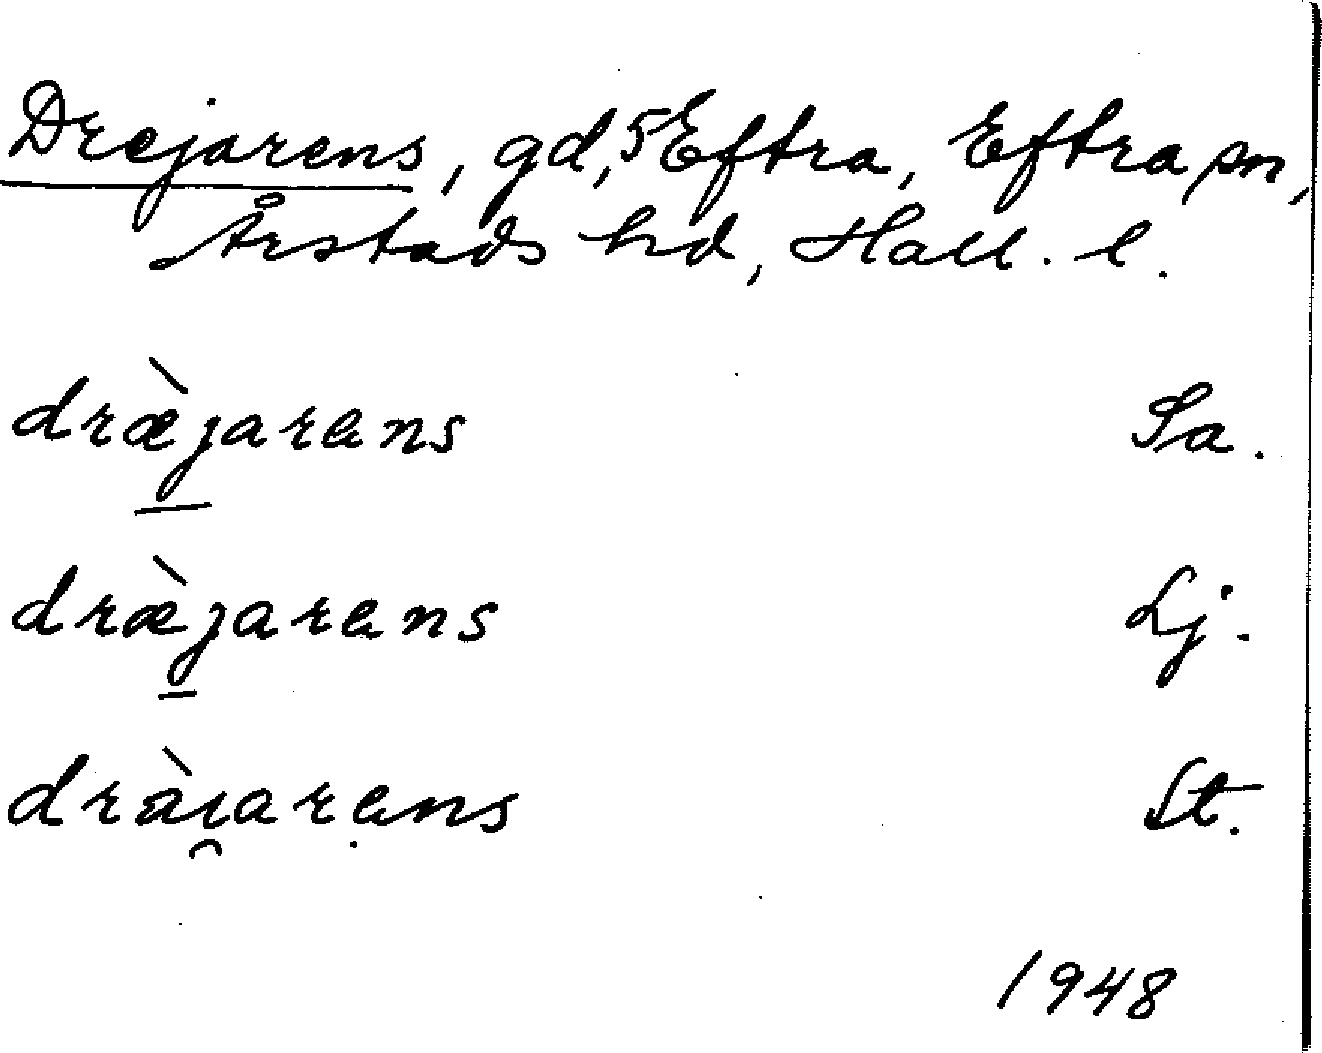 Drejarens, gd, 5 Eftra, Eftra sn,
Årstads hd, Hall. l.
dræ̀jarens Sa.
dræ̀jarens Lj.
drài̯arẹns St.
1948